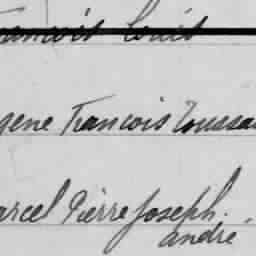 François Louis
gene François Toussa
arcel Pierre Joseph.
andré